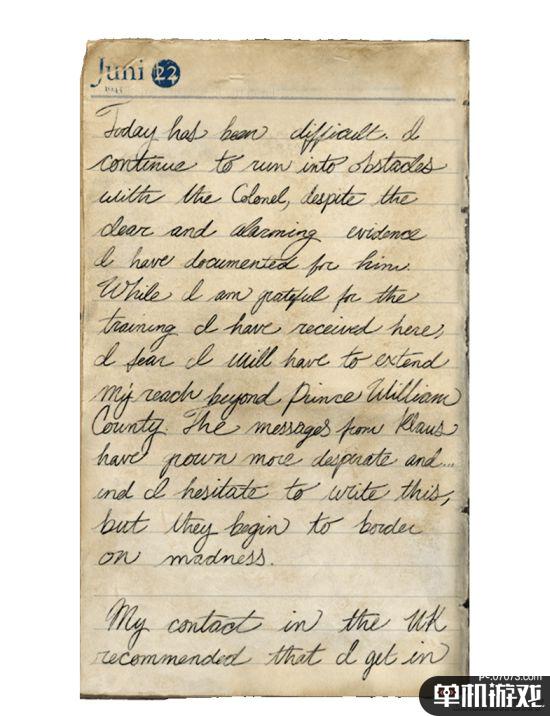 Juni 22
1945
Today has been difficult. I
continue to run into obstacles
with the Colonel, despite the
clear and alarming evidence
I have documented for him.
While I am grateful for the
training I have received here,
I fear I will have to extend
my reach beyond Prince William
County. The messages from Klaus
have grown more desperate and...
and I hesitate to write this,
but they begin to border
on madness.
My contact in the UK
recommended that I get in
pc.07073.com
单机游戏